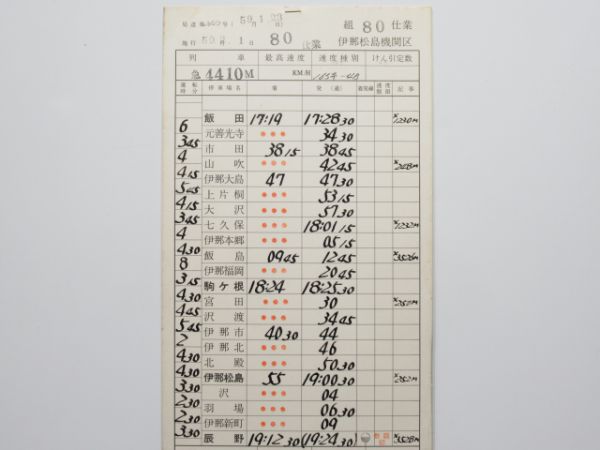 組 80 仕業
施行 59年2月1日 80 仕業 伊那松島機関区
列車 最高速度 速度種別 けん引定数
急 4410M KM/H
運転時分 停車場名 着 発(通) 着発線 速度制限 記事
飯田 17:19 17:28 30
6
元善光寺 ● ● ● 34 30
3 45
市田 38 15 38 45
4
山吹 ● ● ● 42 45
4 15
伊那大島 47 47 30
5 45
上片桐 ● ● ● 53 15
4 15
大沢 ● ● ● 57 30
3 45
七久保 ● ● ● 18:01 15
4
伊那本郷 ● ● ● 05 15
4 30
飯島 09 45 12 45
8
伊那福岡 ● ● ● 20 45
3 15
駒ケ根 18:24 18:25 30
4 30
宮田 ● ● ● 30
4 45
沢渡 ● ● ● 34 45
5 45
伊那市 40 30 44
2
伊那北 ● ● ● 46
4 30
北殿 ● ● ● 50 30
4 30
伊那松島 55 19:00 30
3 30
沢 ● ● ● 04
2 30
羽場 ● ● ● 06 30
2 30
伊那新町 ● ● ● 09
3 30
辰野 19:12 30 (19:24 30)